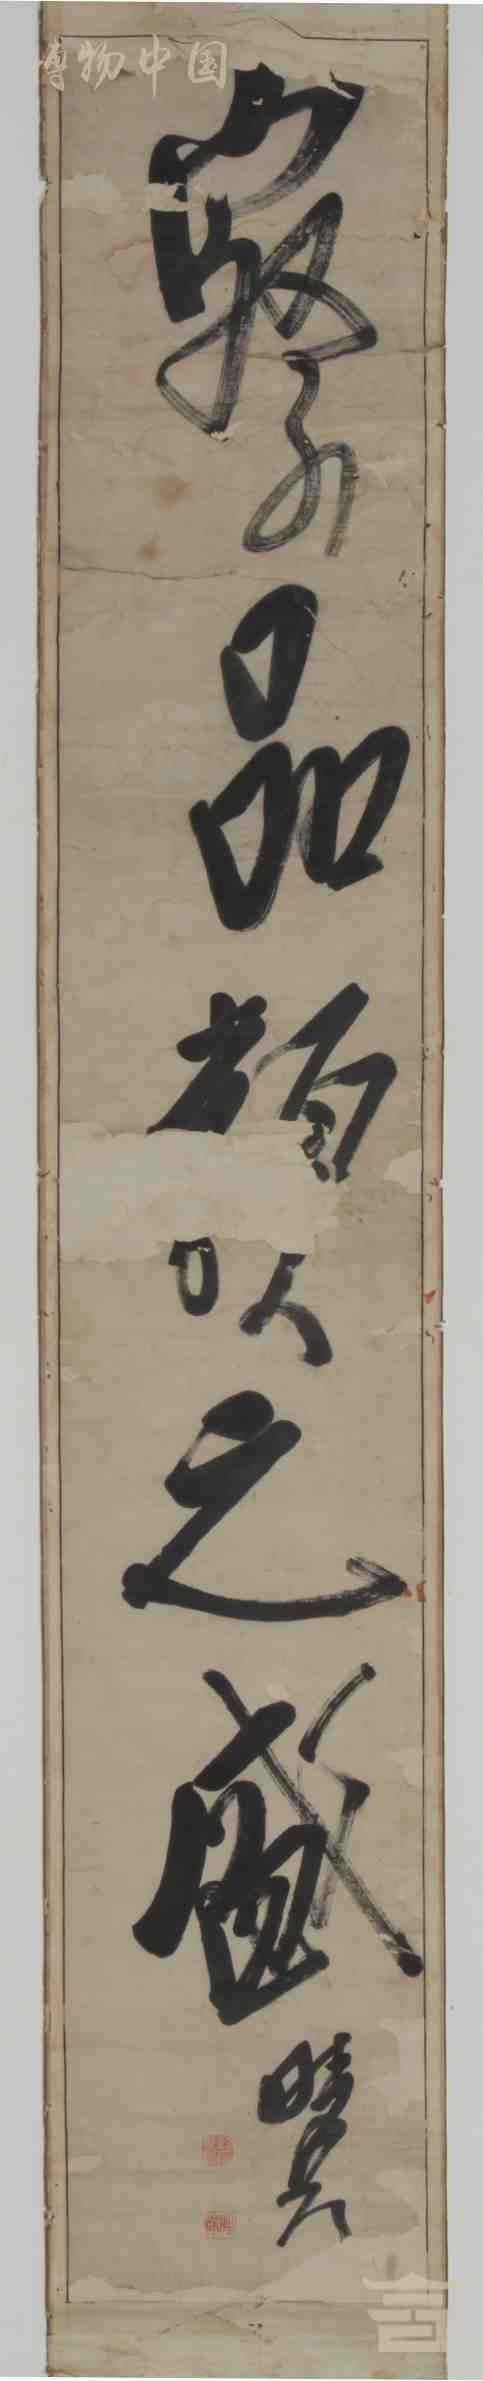 博物中国
察品類之盛